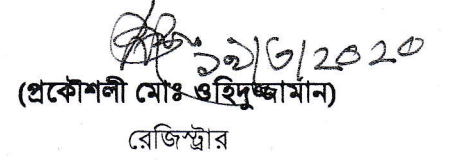 ১৯/৩/২০২০
(প্রকৌশলী মোঃ ওহিদুজ্জামান)
রেজিস্ট্রার